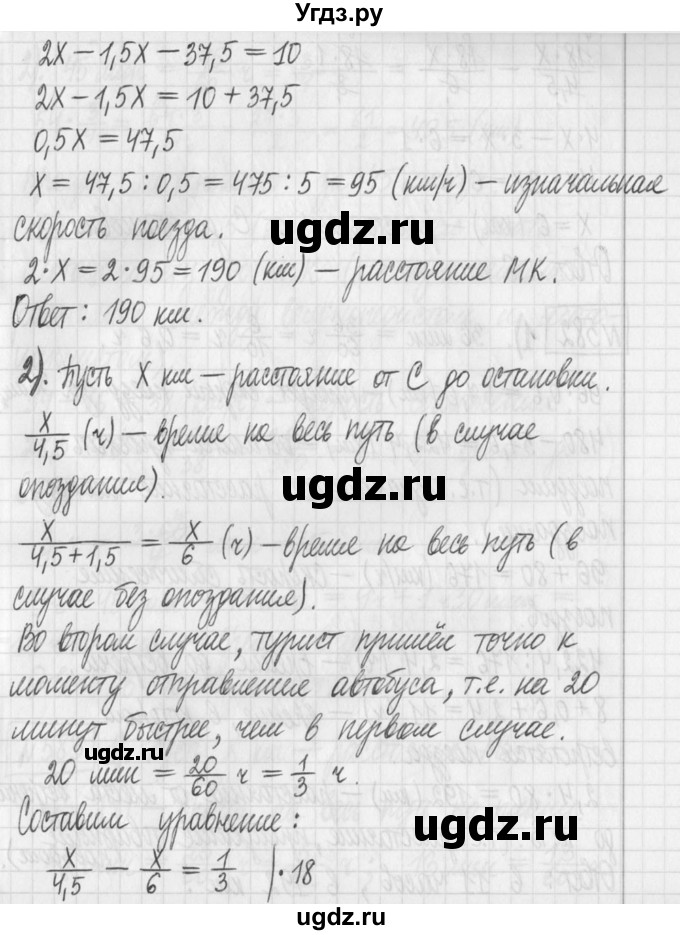 Угдз.ру
2x − 1,5x − 37,5 = 10
2x − 1,5x = 10 + 37,5
0,5x = 47,5
x = 47,5 : 0,5 = 475 : 5 = 95 (км/ч) — изначальная
скорость поезда.
ugdz.ru
2·x = 2·95 = 190 (км) — расстояние МК.
Ответ: 190 км.
2). Пусть x км — расстояние от С до остановки.
x/4,5 (ч) — время на весь путь (в случае
опоздания).
ugdz.ru
x/(4,5+1,5) = x/6 (ч) — время на весь путь (в
случае без опоздания).
Во втором случае, турист пришёл точно к
моменту отправления автобуса, т.е. на 20
минут быстрее, чем в первом случае.
ugdz.ru
20 мин = 20/60 ч = 1/3 ч.
Составим уравнение:
ugdz.ru
x/4,5 − x/6 = 1/3 |·18
ugdz.ru